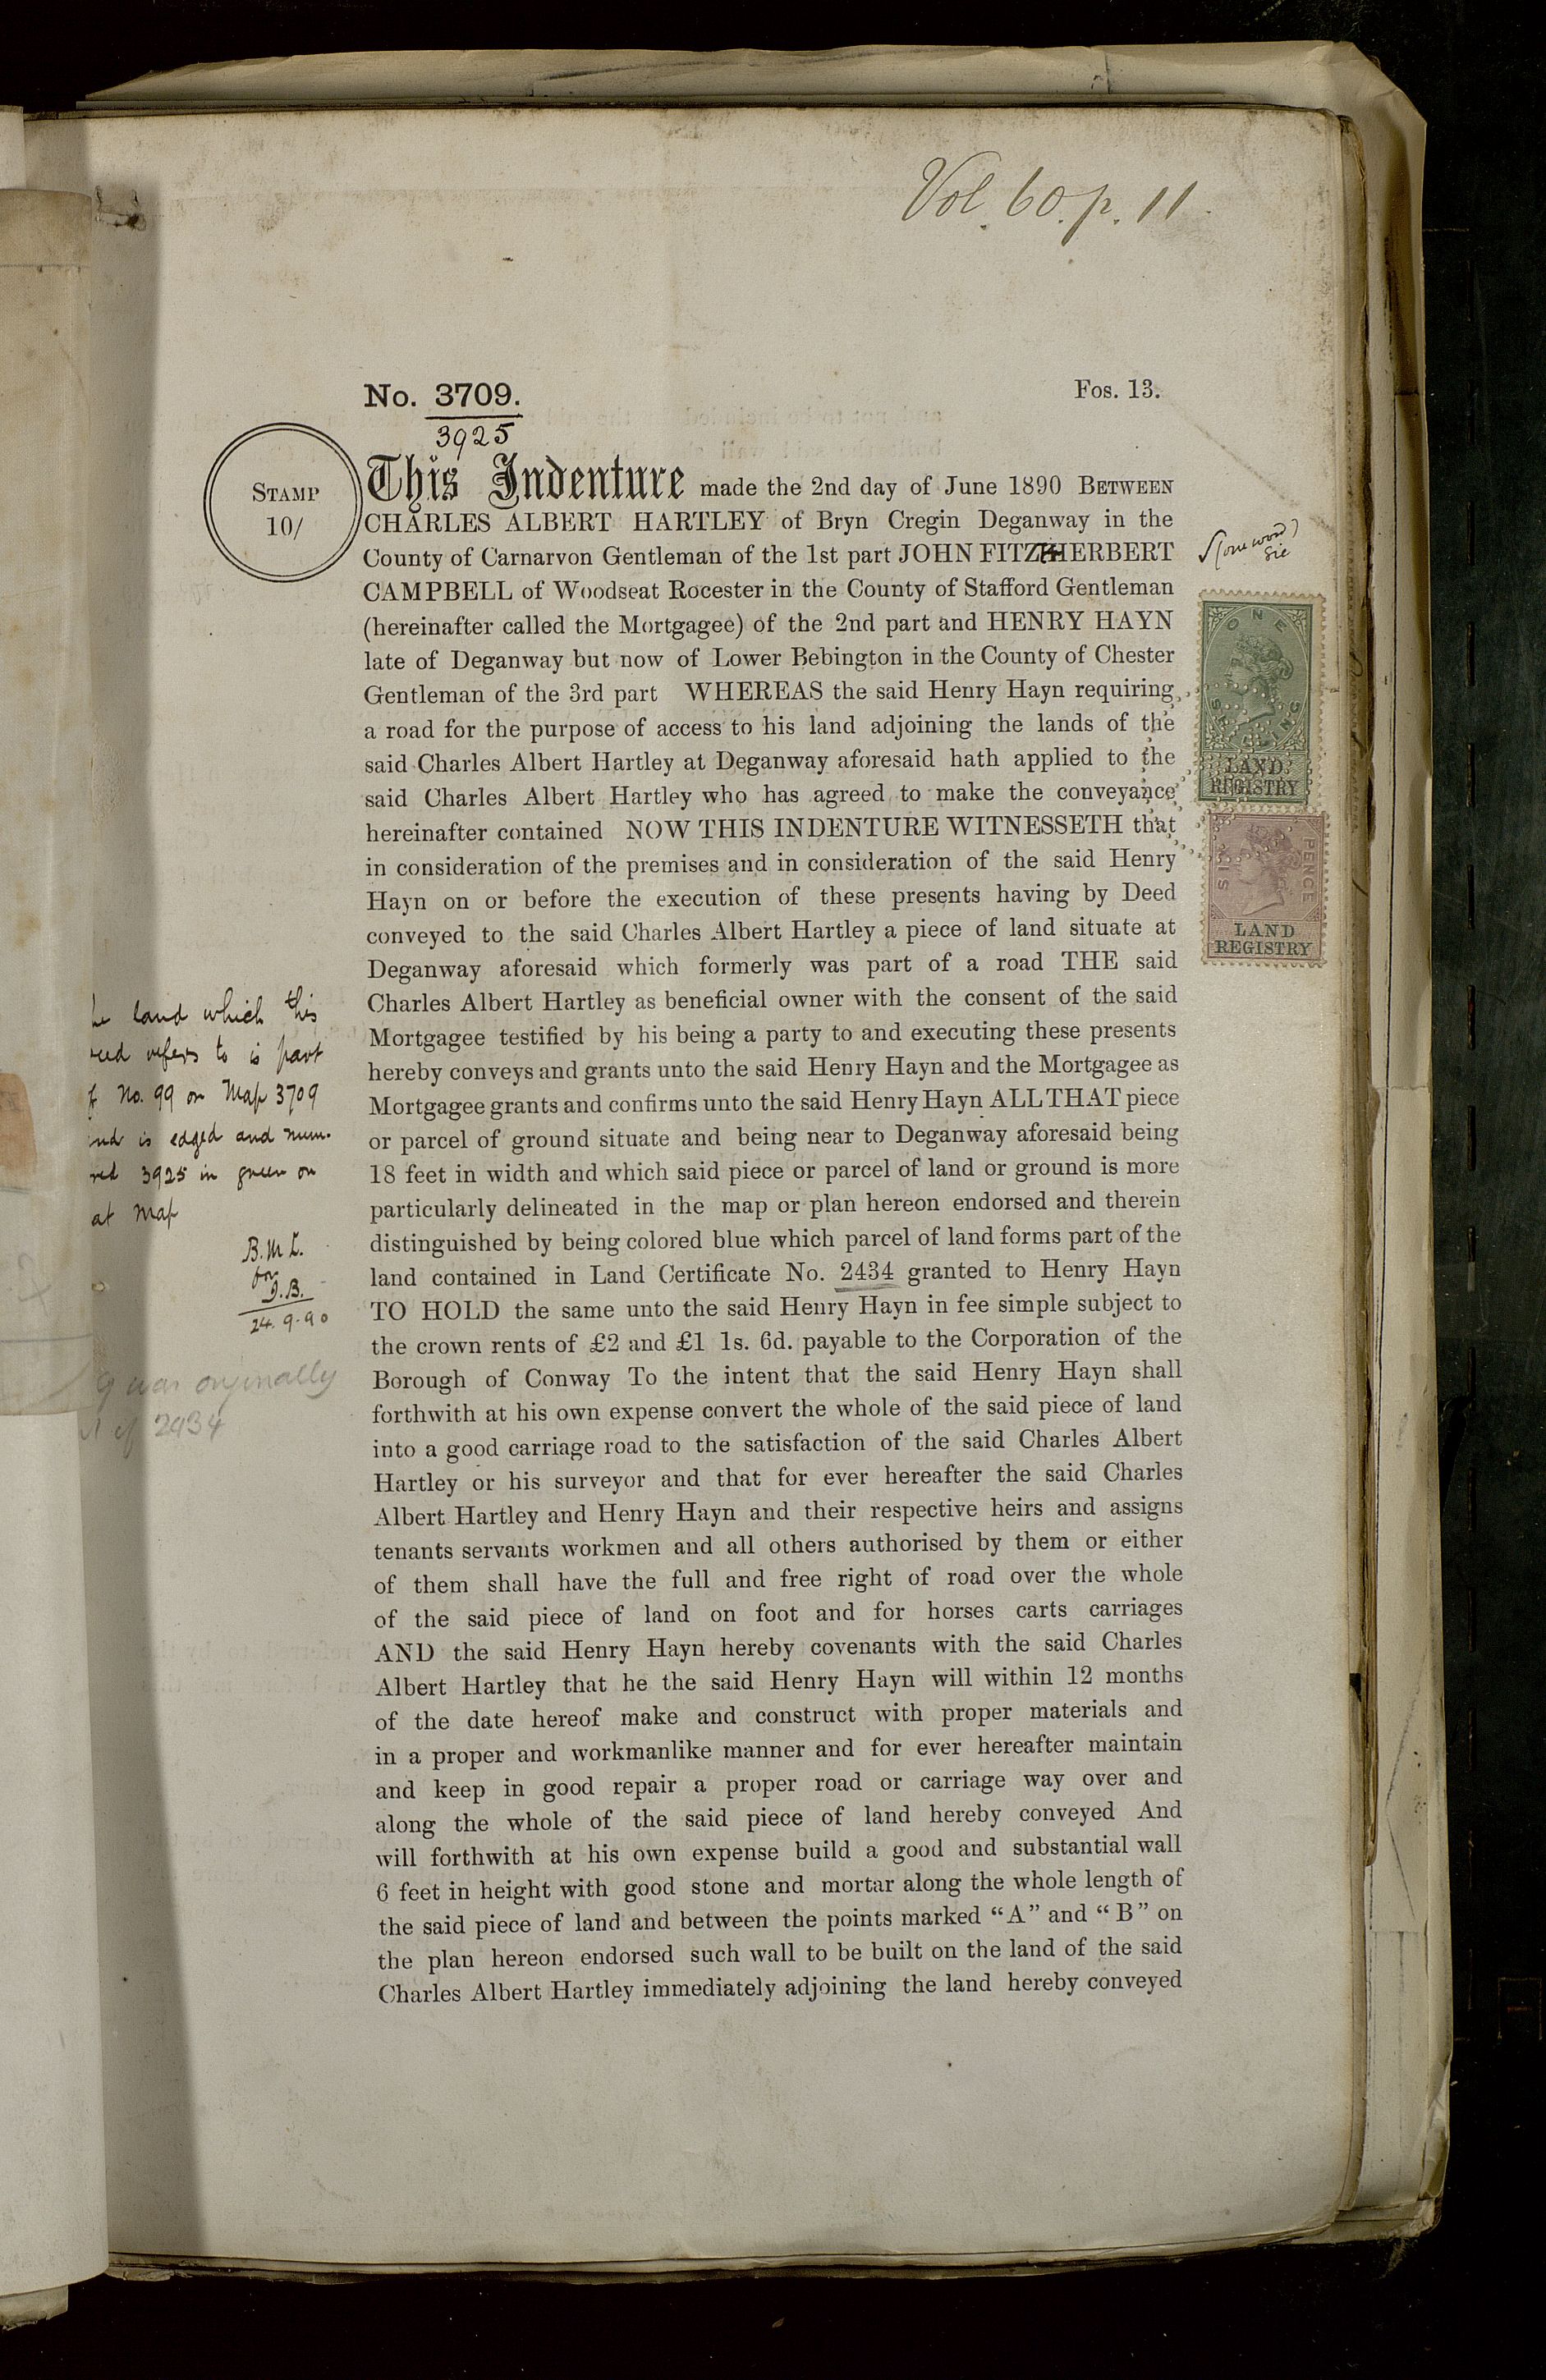 Vol. 60. p. 11.
No. 3709.
3925
Fos. 13.
STAMP
10/
This Indenture made the 2nd day of June 1890 BETWEEN
CHARLES ALBERT HARTLEY of Bryn Cregin Deganway in the
County of Carnarvon Gentleman of the 1st part JOHN FITZHERBERT
CAMPBELL of Woodseat Rocester in the County of Stafford Gentleman
(hereinafter called the Mortgagee) of the 2nd part and HENRY HAYN
late of Deganway but now of Lower Bebington in the County of Chester
Gentleman of the 3rd part WHEREAS the said Henry Hayn requiring
a road for the purpose of access to his land adjoining the lands of the
said Charles Albert Hartley at Deganway aforesaid hath applied to the
said Charles Albert Hartley who has agreed to make the conveyance
hereinafter contained NOW THIS INDENTURE WITNESSETH that
in consideration of the premises and in consideration of the said Henry
Hayn on or before the execution of these presents having by Deed
conveyed to the said Charles Albert Hartley a piece of land situate at
Deganway aforesaid which formerly was part of a road THE said
Charles Albert Hartley as beneficial owner with the consent of the said
Mortgagee testified by his being a party to and executing these presents
hereby conveys and grants unto the said Henry Hayn and the Mortgagee as
Mortgagee grants and confirms unto the said Henry Hayn ALL THAT piece
or parcel of ground situate and being near to Deganway aforesaid being
18 feet in width and which said piece or parcel of land or ground is more
particularly delineated in the map or plan hereon endorsed and therein
distinguished by being colored blue which parcel of land forms part of the
land contained in Land Certificate No. 2434 granted to Henry Hayn
TO HOLD the same unto the said Henry Hayn in fee simple subject to
the crown rents of £2 and £1 1s. 6d. payable to the Corporation of the
Borough of Conway To the intent that the said Henry Hayn shall
forthwith at his own expense convert the whole of the said piece of land
into a good carriage road to the satisfaction of the said Charles Albert
Hartley or his surveyor and that for ever hereafter the said Charles
Albert Hartley and Henry Hayn and their respective heirs and assigns
tenants servants workmen and all others authorised by them or either
of them shall have the full and free right of road over the whole
of the said piece of land on foot and for horses carts carriages
AND the said Henry Hayn hereby covenants with the said Charles
Albert Hartley that he the said Henry Hayn will within 12 months
of the date hereof make and construct with proper materials and
in a proper and workmanlike manner and for ever hereafter maintain
and keep in good repair a proper road or carriage way over and
along the whole of the said piece of land hereby conveyed And
will forthwith at his own expense build a good and substantial wall
6 feet in height with good stone and mortar along the whole length of
the said piece of land and between the points marked “A” and “B” on
the plan hereon endorsed such wall to be built on the land of the said
Charles Albert Hartley immediately adjoining the land hereby conveyed
(one word)
Sic
ONE
SHILLING
LAND
REGISTRY
SIX PENCE
LAND
REGISTRY
land which this
refers to is part
No. 99 on Map 3709
is edged and num-
3925 in green on
Map
B.M.L.
for
D.B.
24.9.90
9 was originally
of 2434